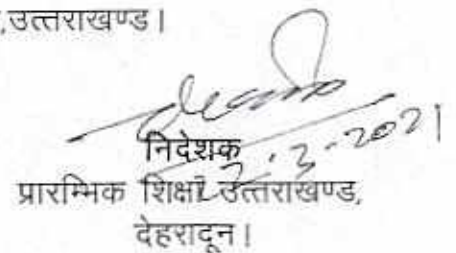 ,उत्तराखण्ड।
निदेशक
2-3-2021
प्रारम्भिक शिक्षा उत्तराखण्ड,
देहरादून।